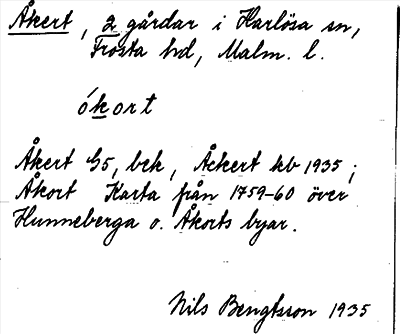 Åkert, 2 gårdar i Harlösa sn,
Frosta hd, Malm. l.
ókort
Åkert G5, bek, Åckert kb 1935;
Åkort Karta från 1759-60 över
Hunneberga o. Åkorts byar.
Nils Bengtsson 1935